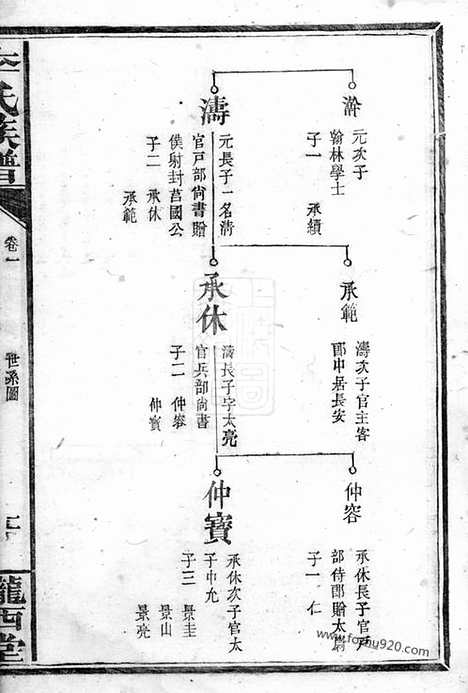 澣
元次子
翰林學士
子一 承績
濤
元長子一名淸
官戸部尙書贈
僕射封莒國公
子二 承休
承範
承範
濤次子官主客
郎中居長安
承休
濤長子字太亮
官兵部尙書
子二 仲容
仲寶
仲容
承休長子官戸
部侍郎贈太
子一 仁
仲寶
承休次子官太
子中允
子三 景圭
景山
景亮
李氏族譜
卷一
世系圖
隴西堂
www.foryhu920.com